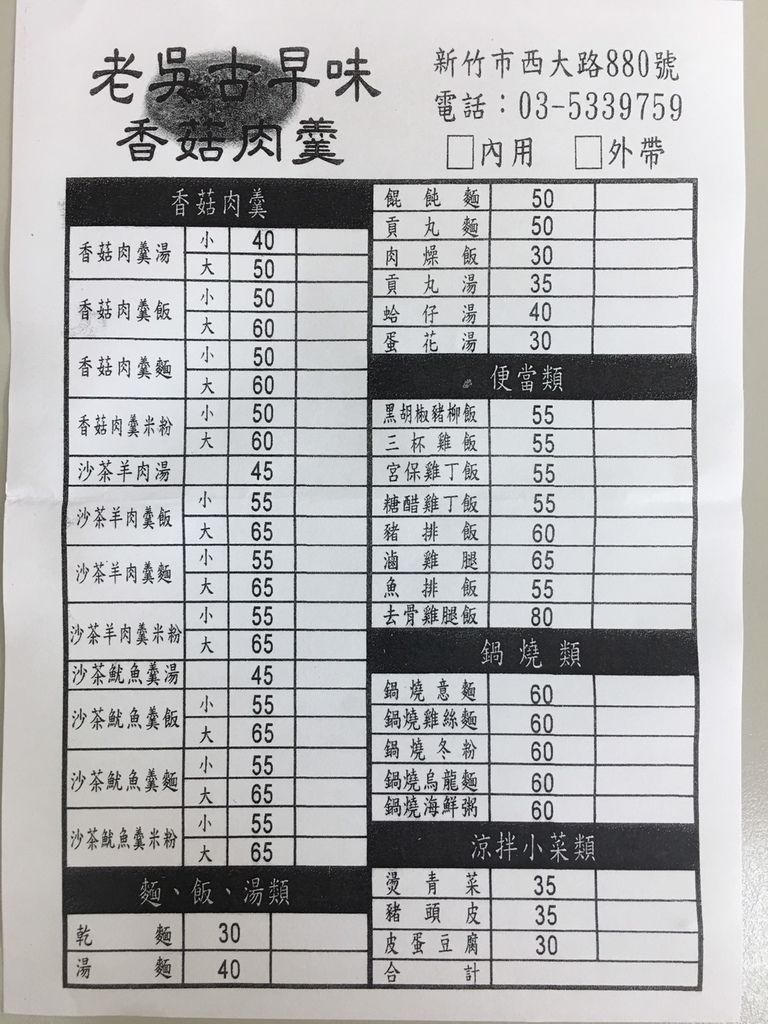 老吳古早味
香菇肉羹
新竹市西大路880號
電話：03-5339759
□內用 □外帶
香菇肉羹
香菇肉羹湯 小 40
大 50
香菇肉羹飯 小 50
大 60
香菇肉羹麵 小 50
大 60
香菇肉羹米粉 小 50
大 60
沙茶羊肉湯 45
沙茶羊肉羹飯 小 55
大 65
沙茶羊肉羹麵 小 55
大 65
沙茶羊肉羹米粉 小 55
大 65
沙茶魷魚羹湯 45
沙茶魷魚羹飯 小 55
大 65
沙茶魷魚羹麵 小 55
大 65
沙茶魷魚羹米粉 小 55
大 65
麵、飯、湯類
乾麵 30
湯麵 40
餛飩麵 50
貢丸麵 50
肉燥飯 30
貢丸湯 35
蛤仔湯 40
蛋花湯 30
便當類
黑胡椒豬柳飯 55
三杯雞飯 55
宮保雞丁飯 55
糖醋雞丁飯 55
豬排飯 60
滷雞腿 65
魚排飯 55
去骨雞腿飯 80
鍋燒類
鍋燒意麵 60
鍋燒雞絲麵 60
鍋燒冬粉 60
鍋燒烏龍麵 60
鍋燒海鮮粥 60
涼拌小菜類
燙青菜 35
豬頭皮 35
皮蛋豆腐 30
合計